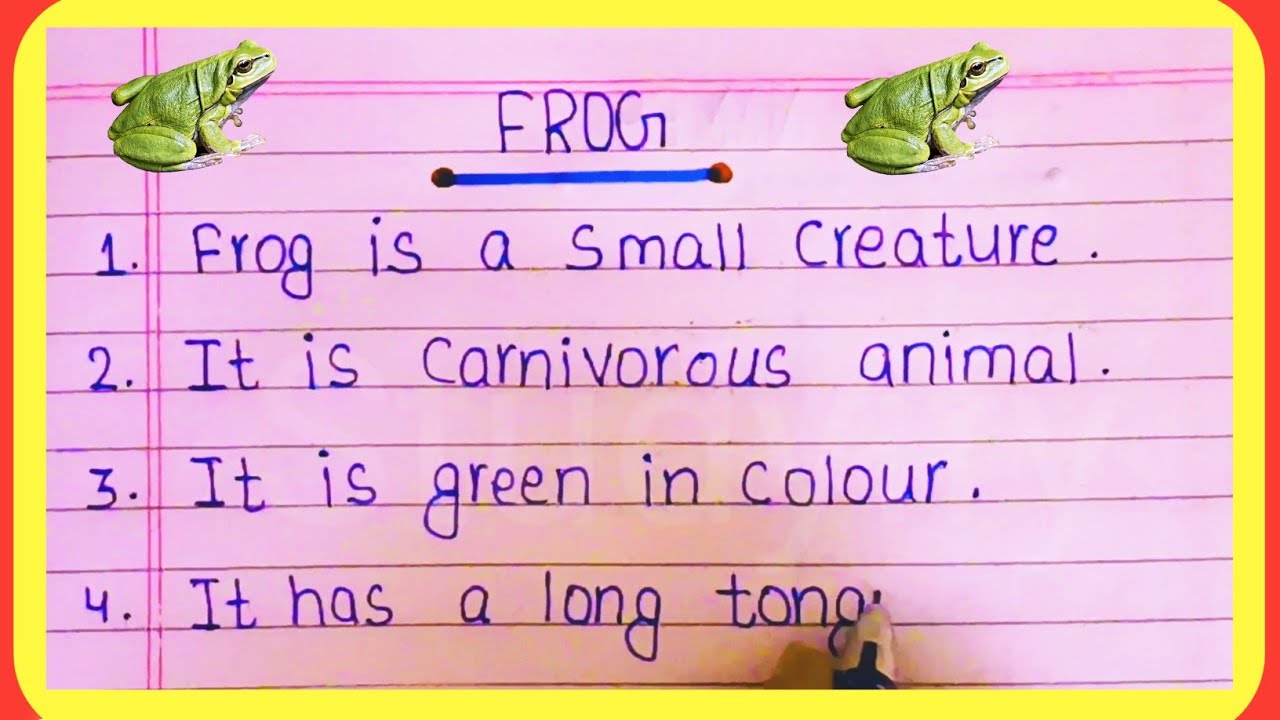 FROG
1. Frog is a small creature.
2. It is carnivorous animal.
3. It is green in colour.
4. It has a long tong